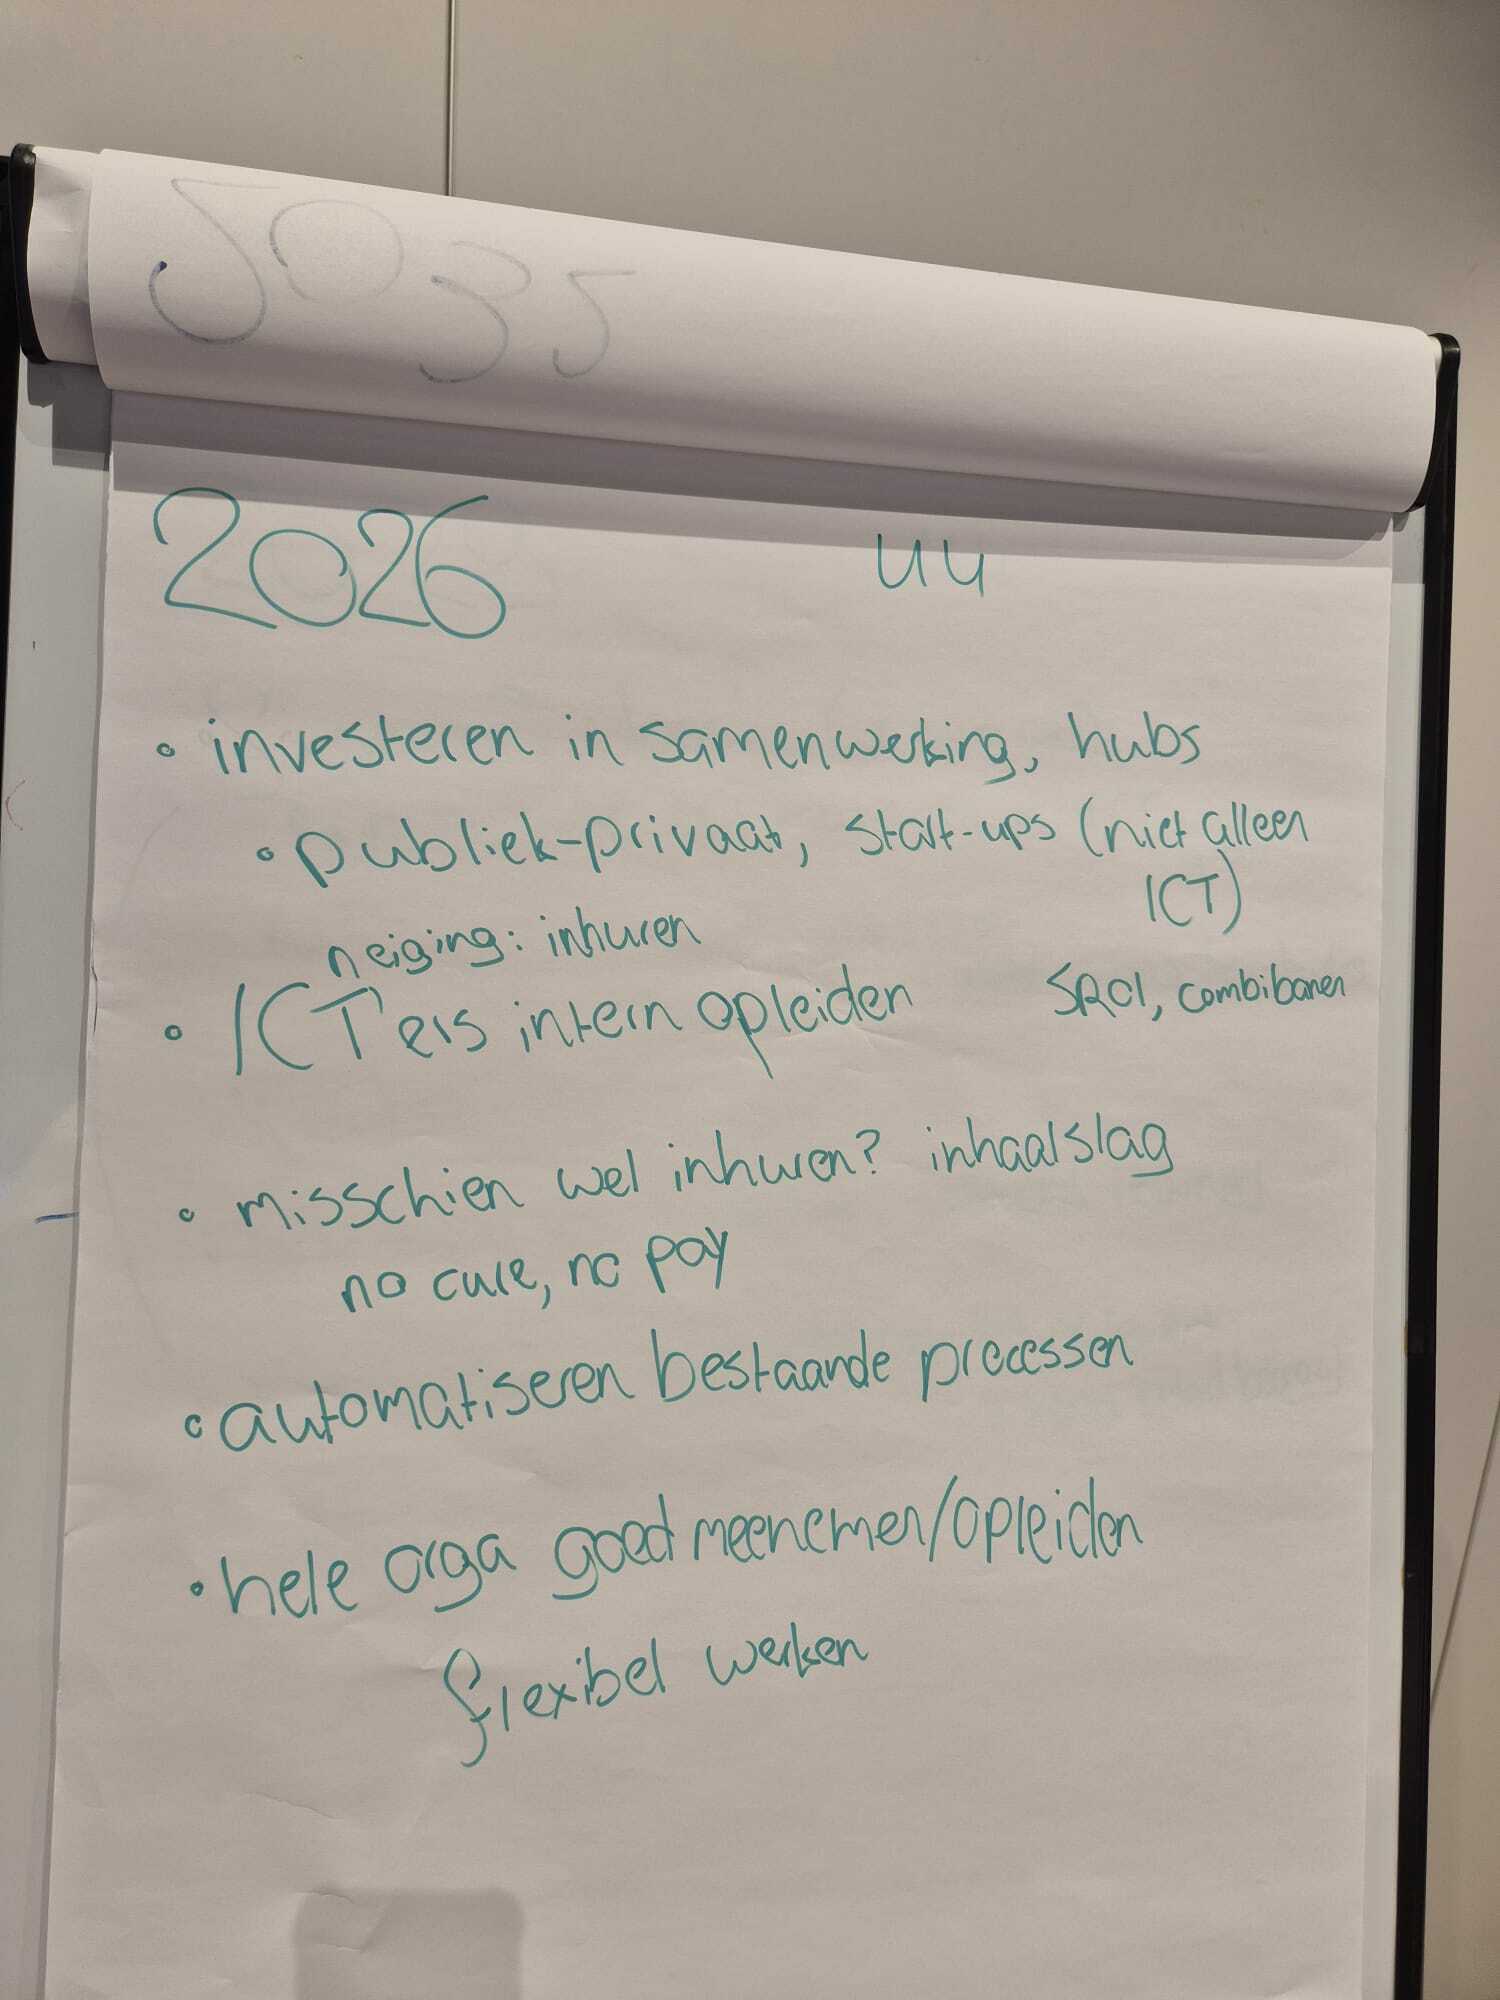 2026 44
• investeren in samenwerking, hubs
• publiek-privaat, start-ups (niet alleen
ICT)
neiging: inhuren
• ICT'ers intern opleiden SROI, combibanen
• misschien wel inhuren? inhaalslag
no cure, no pay
• automatiseren bestaande processen
• hele orga goed meenemen/opleiden
flexibel werken